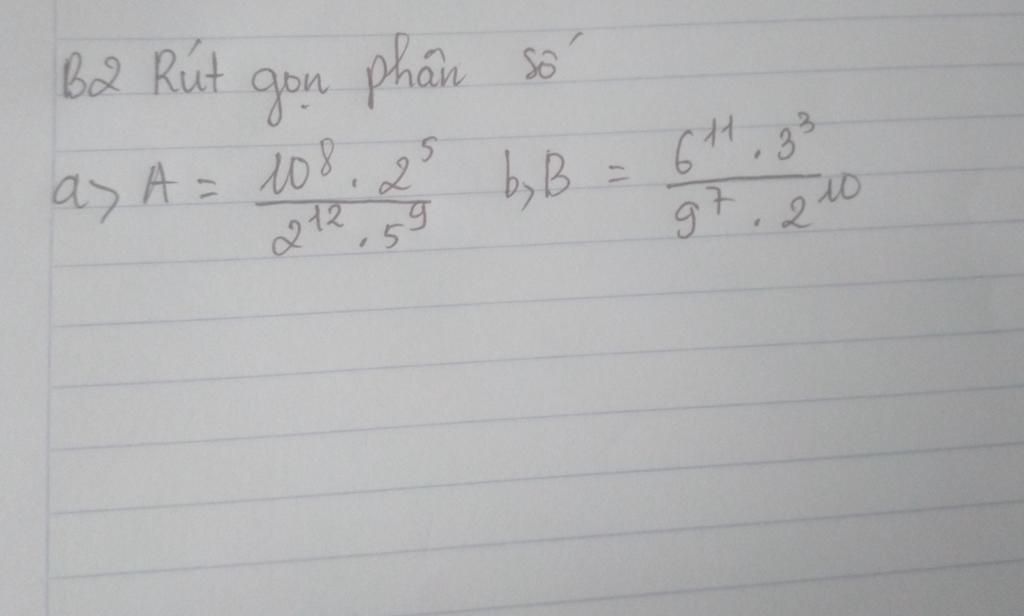 B2 Rút gọn phân số
a> A = \frac{10^8 . 2^5}{2^{12} . 5^9} b, B = \frac{6^{11} . 3^3}{9^7 . 2^{10}}